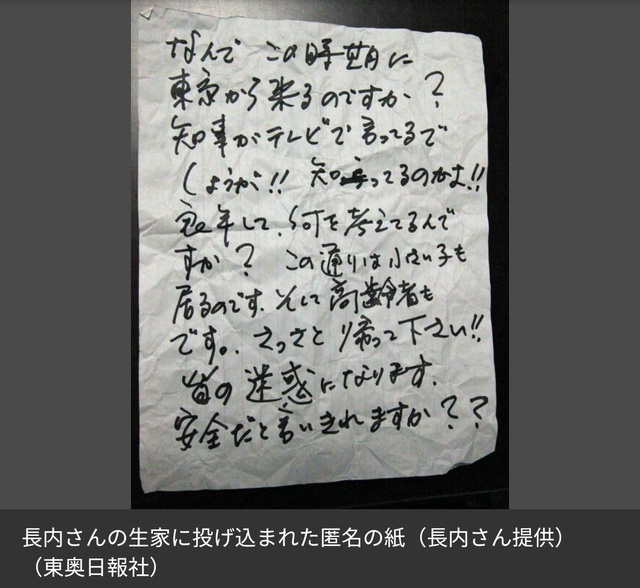 なんで この時期に
東京から来るのですか?
知事がテレビで言ってるで
しょうが!! 知ってるのかよ!!
良年して、何を考えてるんで
すか? この通りは小さい子も
居るのです、そして高齢者も
です。さっさと帰って下さい!!
皆の迷惑になります。
安全だと言いきれますか??
長内さんの生家に投げ込まれた匿名の紙(長内さん提供)
(東奥日報社)